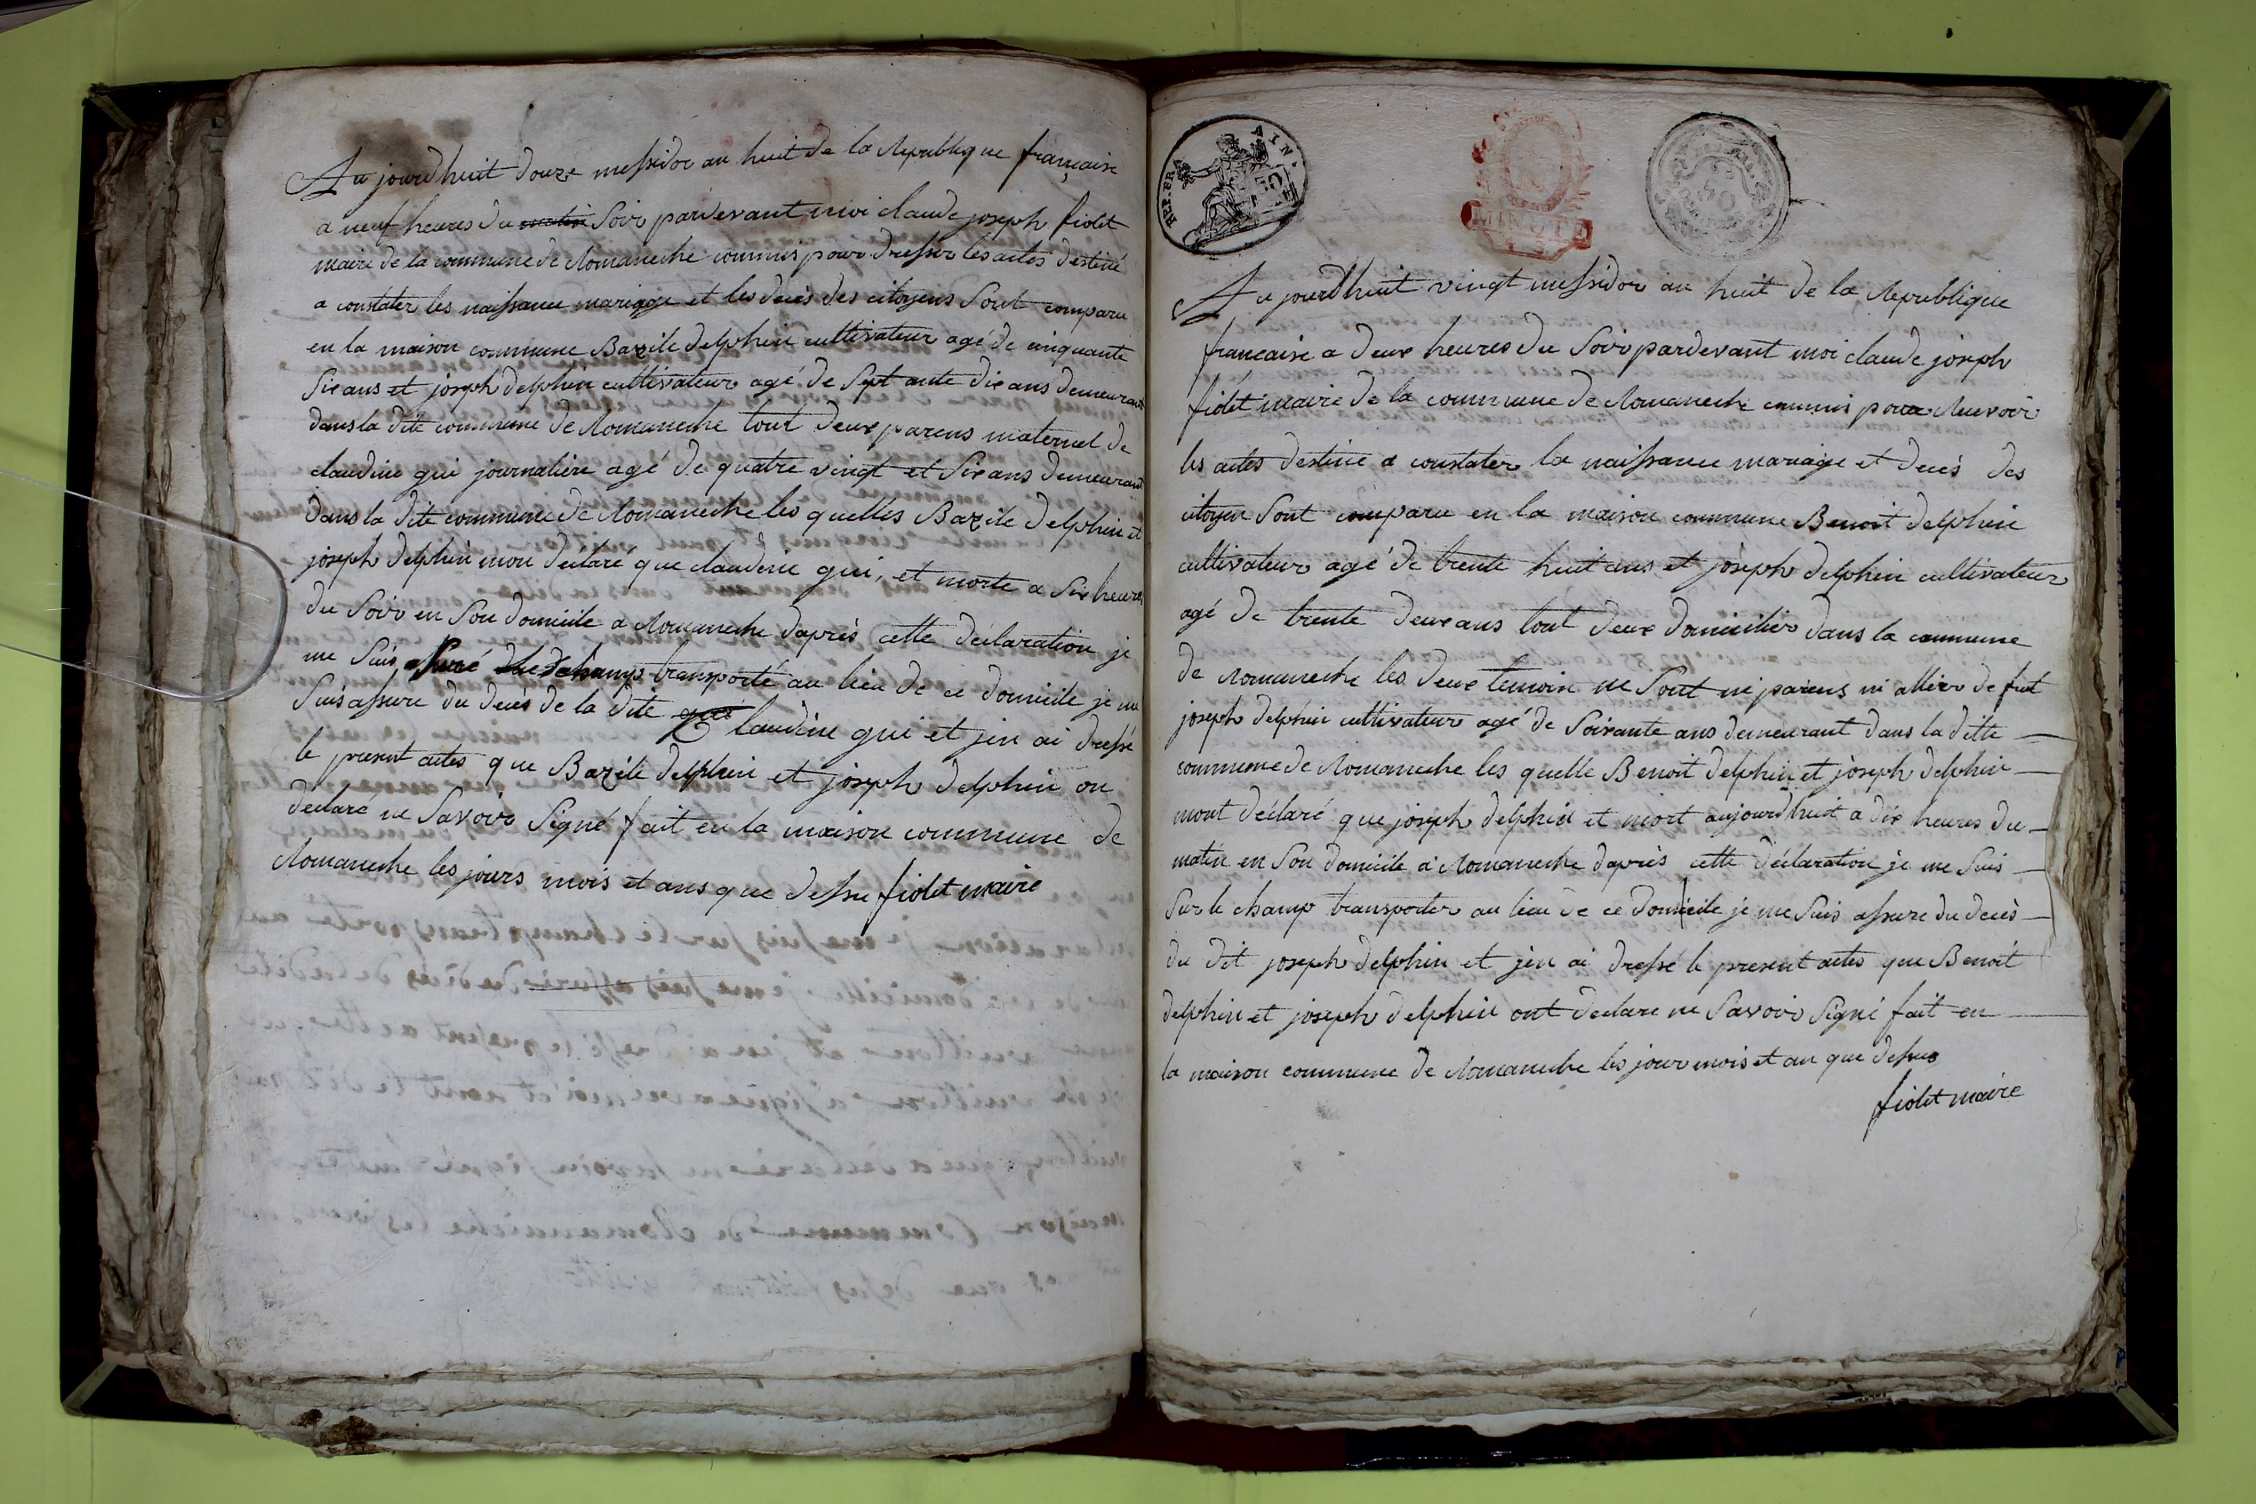 Au jourdhuit douze messidor an huit de la Republique francaise
a neuf heures du matin Soir pardevant moi claude joseph fiolet
maire de la commune de Romaneche commis pour dresser les actes destiné
a constater les naissance mariage et les deces des citoyens Sont comparu
en la maison commune Bazile delphin cultivateur agé de cinquante
Six ans et joseph delphin cultivateur agé de Sept ante dix ans demeurant
dans la dite commune de Romaneche tout deux parens maternel de
claudine gui journaliere agé de quatre vingt et Six ans demeurant
dans la dite commune de Romaneche les quelles Bazile delphin et
joseph delphin mon déclaré que claudine gui, et morte a Six heures
du Soir en Son domicile a Romaneche daprès cette déclaration je
me Suis champ transporté au lieu de ce domicile je me
Suis assure du deces de la dite Claudine gui et jen ai dressé
le present actes que Bazile delphin et joseph delphin on
declare ne Savoir Signé fait en la maison commune de
Romaneche les jours mois et ans que dessu fiolet maire
REP. FRA AIN.
MINUTE
Au jourdhuit vingt messidor an huit de la Republique
francaise a deux heures du Soir pardevant moi claude joseph
fiolet maire de la commune de Romaneche commis pour Recevoir
les actes destiné a constater la naissance mariage et decés des
citoyen Sont comparu en la maison commune Benoit delphin
cultivateur agé de trente huit ans et joseph delphin cultivateur
agé de trente deux ans tout deux domicilier dans la commune
de Romaneche les deux temoin ne Sont ni parens ni allier de fut
joseph delphin cultivateur agé de Soixante ans demeurant dans la ditte
commune de Romaneche les quelle Benoit delphin et joseph delphin
mont déclaré que joseph delphin et mort aujourdhuit a dix heures du
matin en Son domicile a Romaneche daprès cette déclaration je me Suis
Sur le champ transporter au lieu de ce domicile je me Suis assure du decès
du dit joseph delphin et jen ai dressé le present actes que Benoit
delphin et joseph delphin ont declare ne Savoir Signé fait en
la maison commune de Romaneche les jour mois et an que dessus
fiolet maire